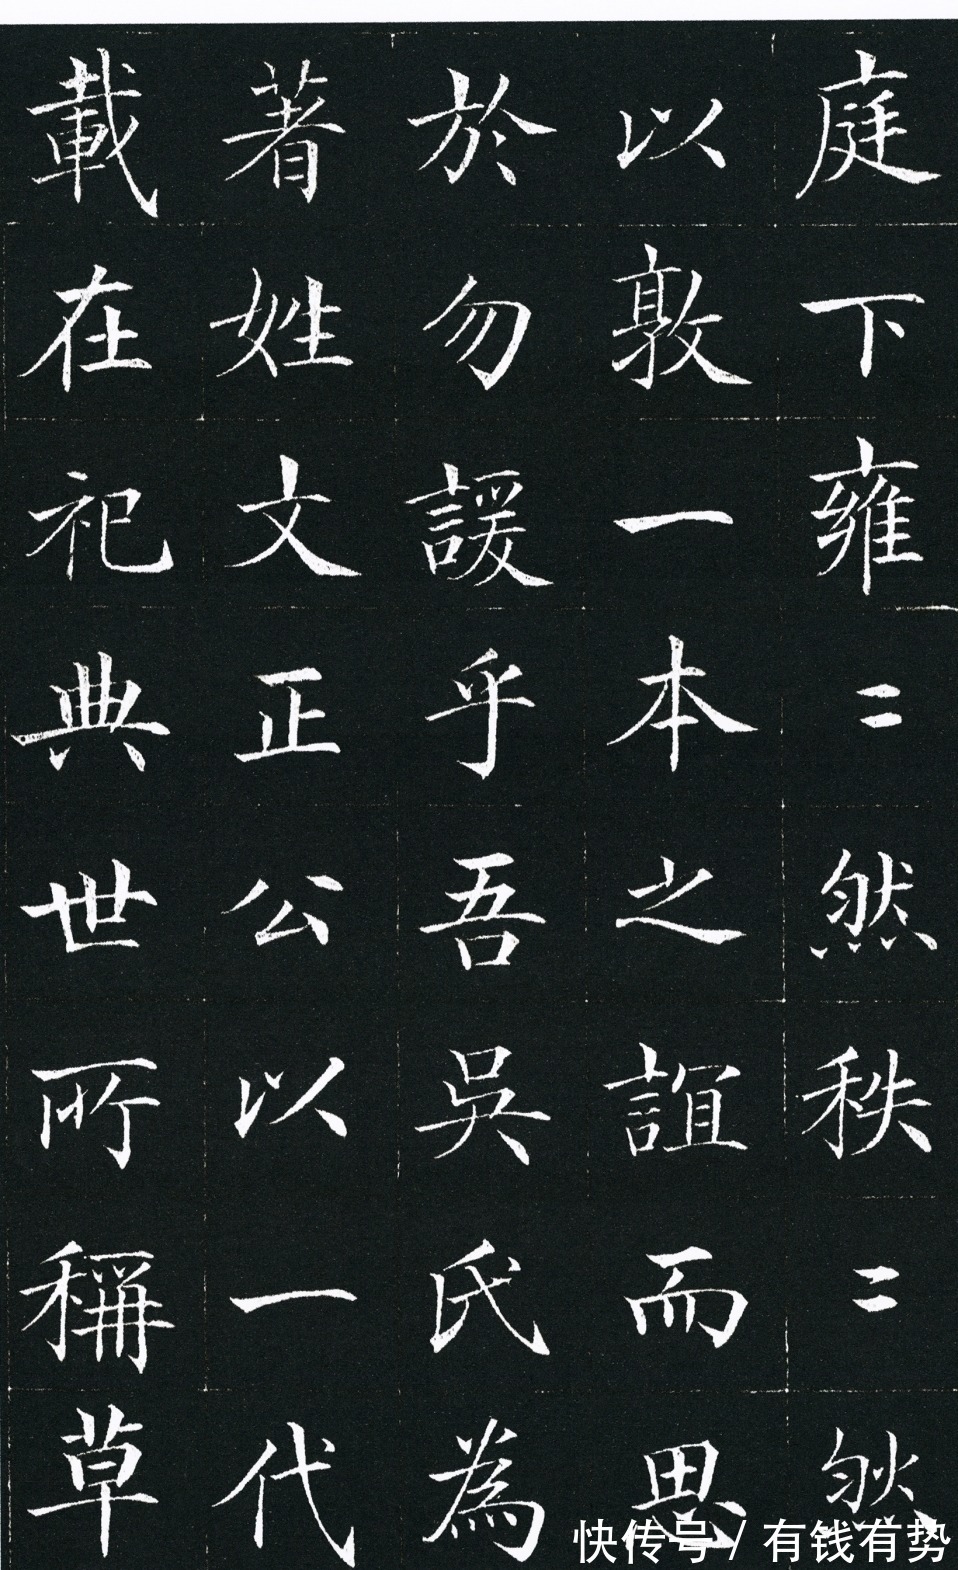 庭下雍〻然秩〻然
以敦一本之誼而思
於勿諼乎吾吳氏為
著姓文正公以一代
載在祀典世所稱草
快传号/有钱有势